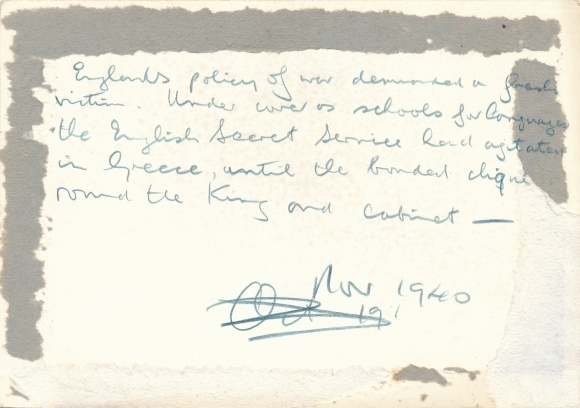 England's policy of war demanded a fresh
victim. Under cover as schools for languages
the English Secret Service had agitated
in Greece, until the bonded clique
round the King and Cabinet —
Nov 1940
Oct 19